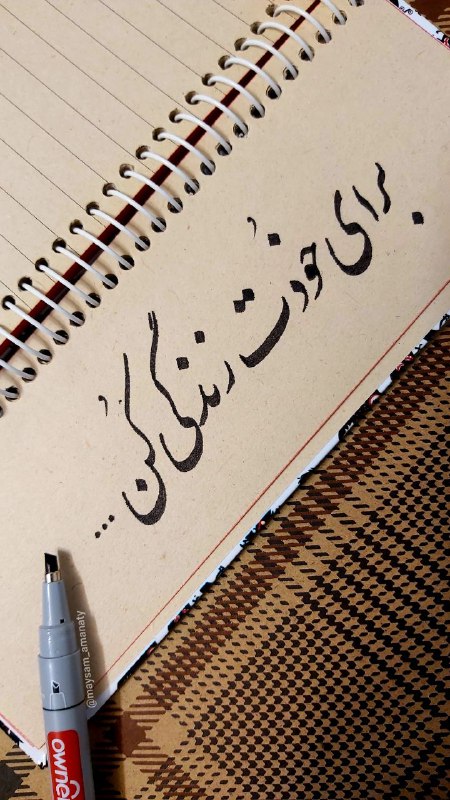 برای خُودت زندگی کُن...
@maysam_amanaty
owner